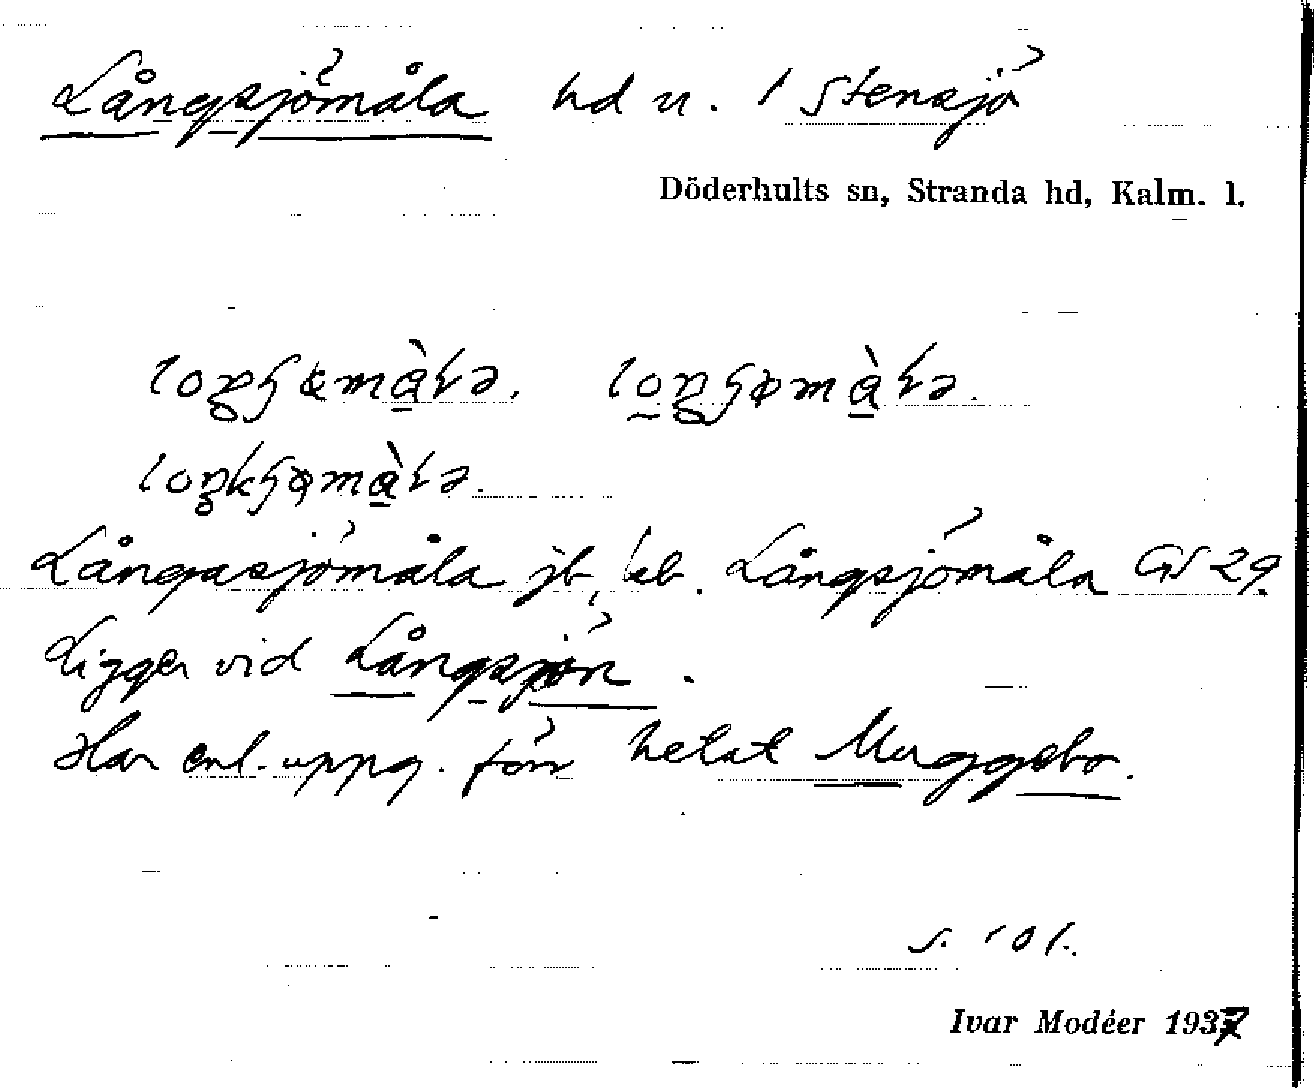 Långsjömåla hd u. 1 Stensjö
Döderhults sn, Stranda hd, Kalm. l.
Långasjömåla jb, kb. Långsjömåla GS 29.
Ligger vid Långsjön.
Har enl. uppg. förr hetat Muggebo.
s. 101.
Ivar Modéer 1937